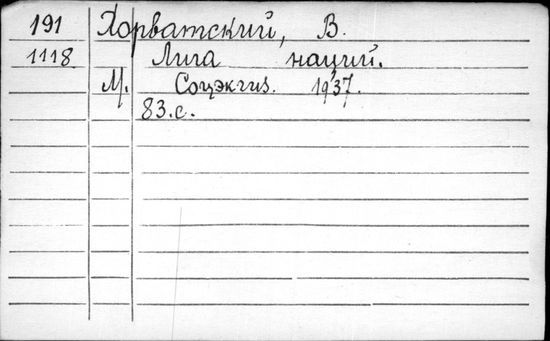 191 Хорватский, В.
1118 Лига наций.
М. Соцэкгиз. 1937.
83.с.